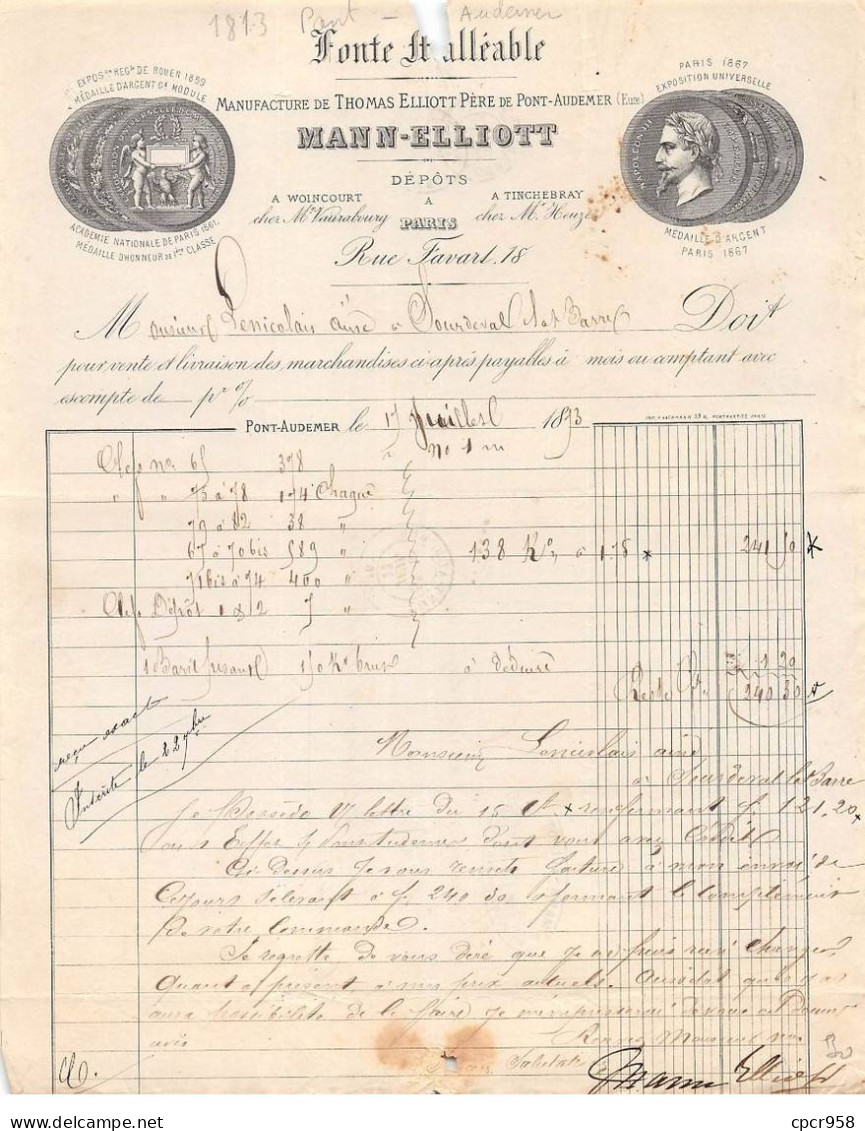 1873 Pont - Audemer
Fonte Malléable
EXPOS.on REG.le DE ROUEN 1859
MÉDAILLE D'ARGENT G.d MODULE
PARIS 1867
EXPOSITION UNIVERSELLE
MANUFACTURE DE THOMAS ELLIOTT PÈRE DE PONT-AUDEMER (Eure)
MANN-ELLIOTT
DÉPÔTS
A WOINCOURT
chez Mr Vaurabourg
A
PARIS
A TINCHEBRAY
chez Mr Heuzé
Rue Favart, 18
NAPOLEON III
ACADÉMIE NATIONALE DE PARIS 1861.
MÉDAILLE D'HONNEUR DE 1ère CLASSE
MÉDAILLE D'ARGENT
PARIS 1867
Monsieur Lenicolais ainé à Sourdeval la Barre Doit
pour vente et livraison des marchandises ci-après payables à mois ou comptant avec
escompte de pr %
PONT-AUDEMER le 17 Juillet 1873
Clefs nos 65 378 " no 1 m
" " 75 à 78 174 Chaque
79 à 82 38 "
67 à 70 bis 589 " 138 Kos à 1.75 241 50
71 bis à 74 400 "
Clefs Dépôt 1 & 2 7 "
1 Baril pesant 150 Ks brut à déduire 1 20
Reste 240 30
reçu exact
Inscrite le 22 7bre
Monsieur Lenicolais ainé
à Sourdeval la Barre
Je Possède V/ lettre du 15 Ct renfermant f. 121,20
en 1 Effet s/ Pont Audemer dont vous avez Crédit
Ci-Dessus Je vous remets facture à mon envoi de
Ce jour s'élevant à f. 240 30 & formant le Complément
de votre Commande.
Je regrette de vous dire que Je ne puis rien changer
Quant à présent à mes prix actuels. Aussitôt que
aura possibilité de le faire Je m'empresserai de vous en donner
avis
Salutations
Mann Elliott
30